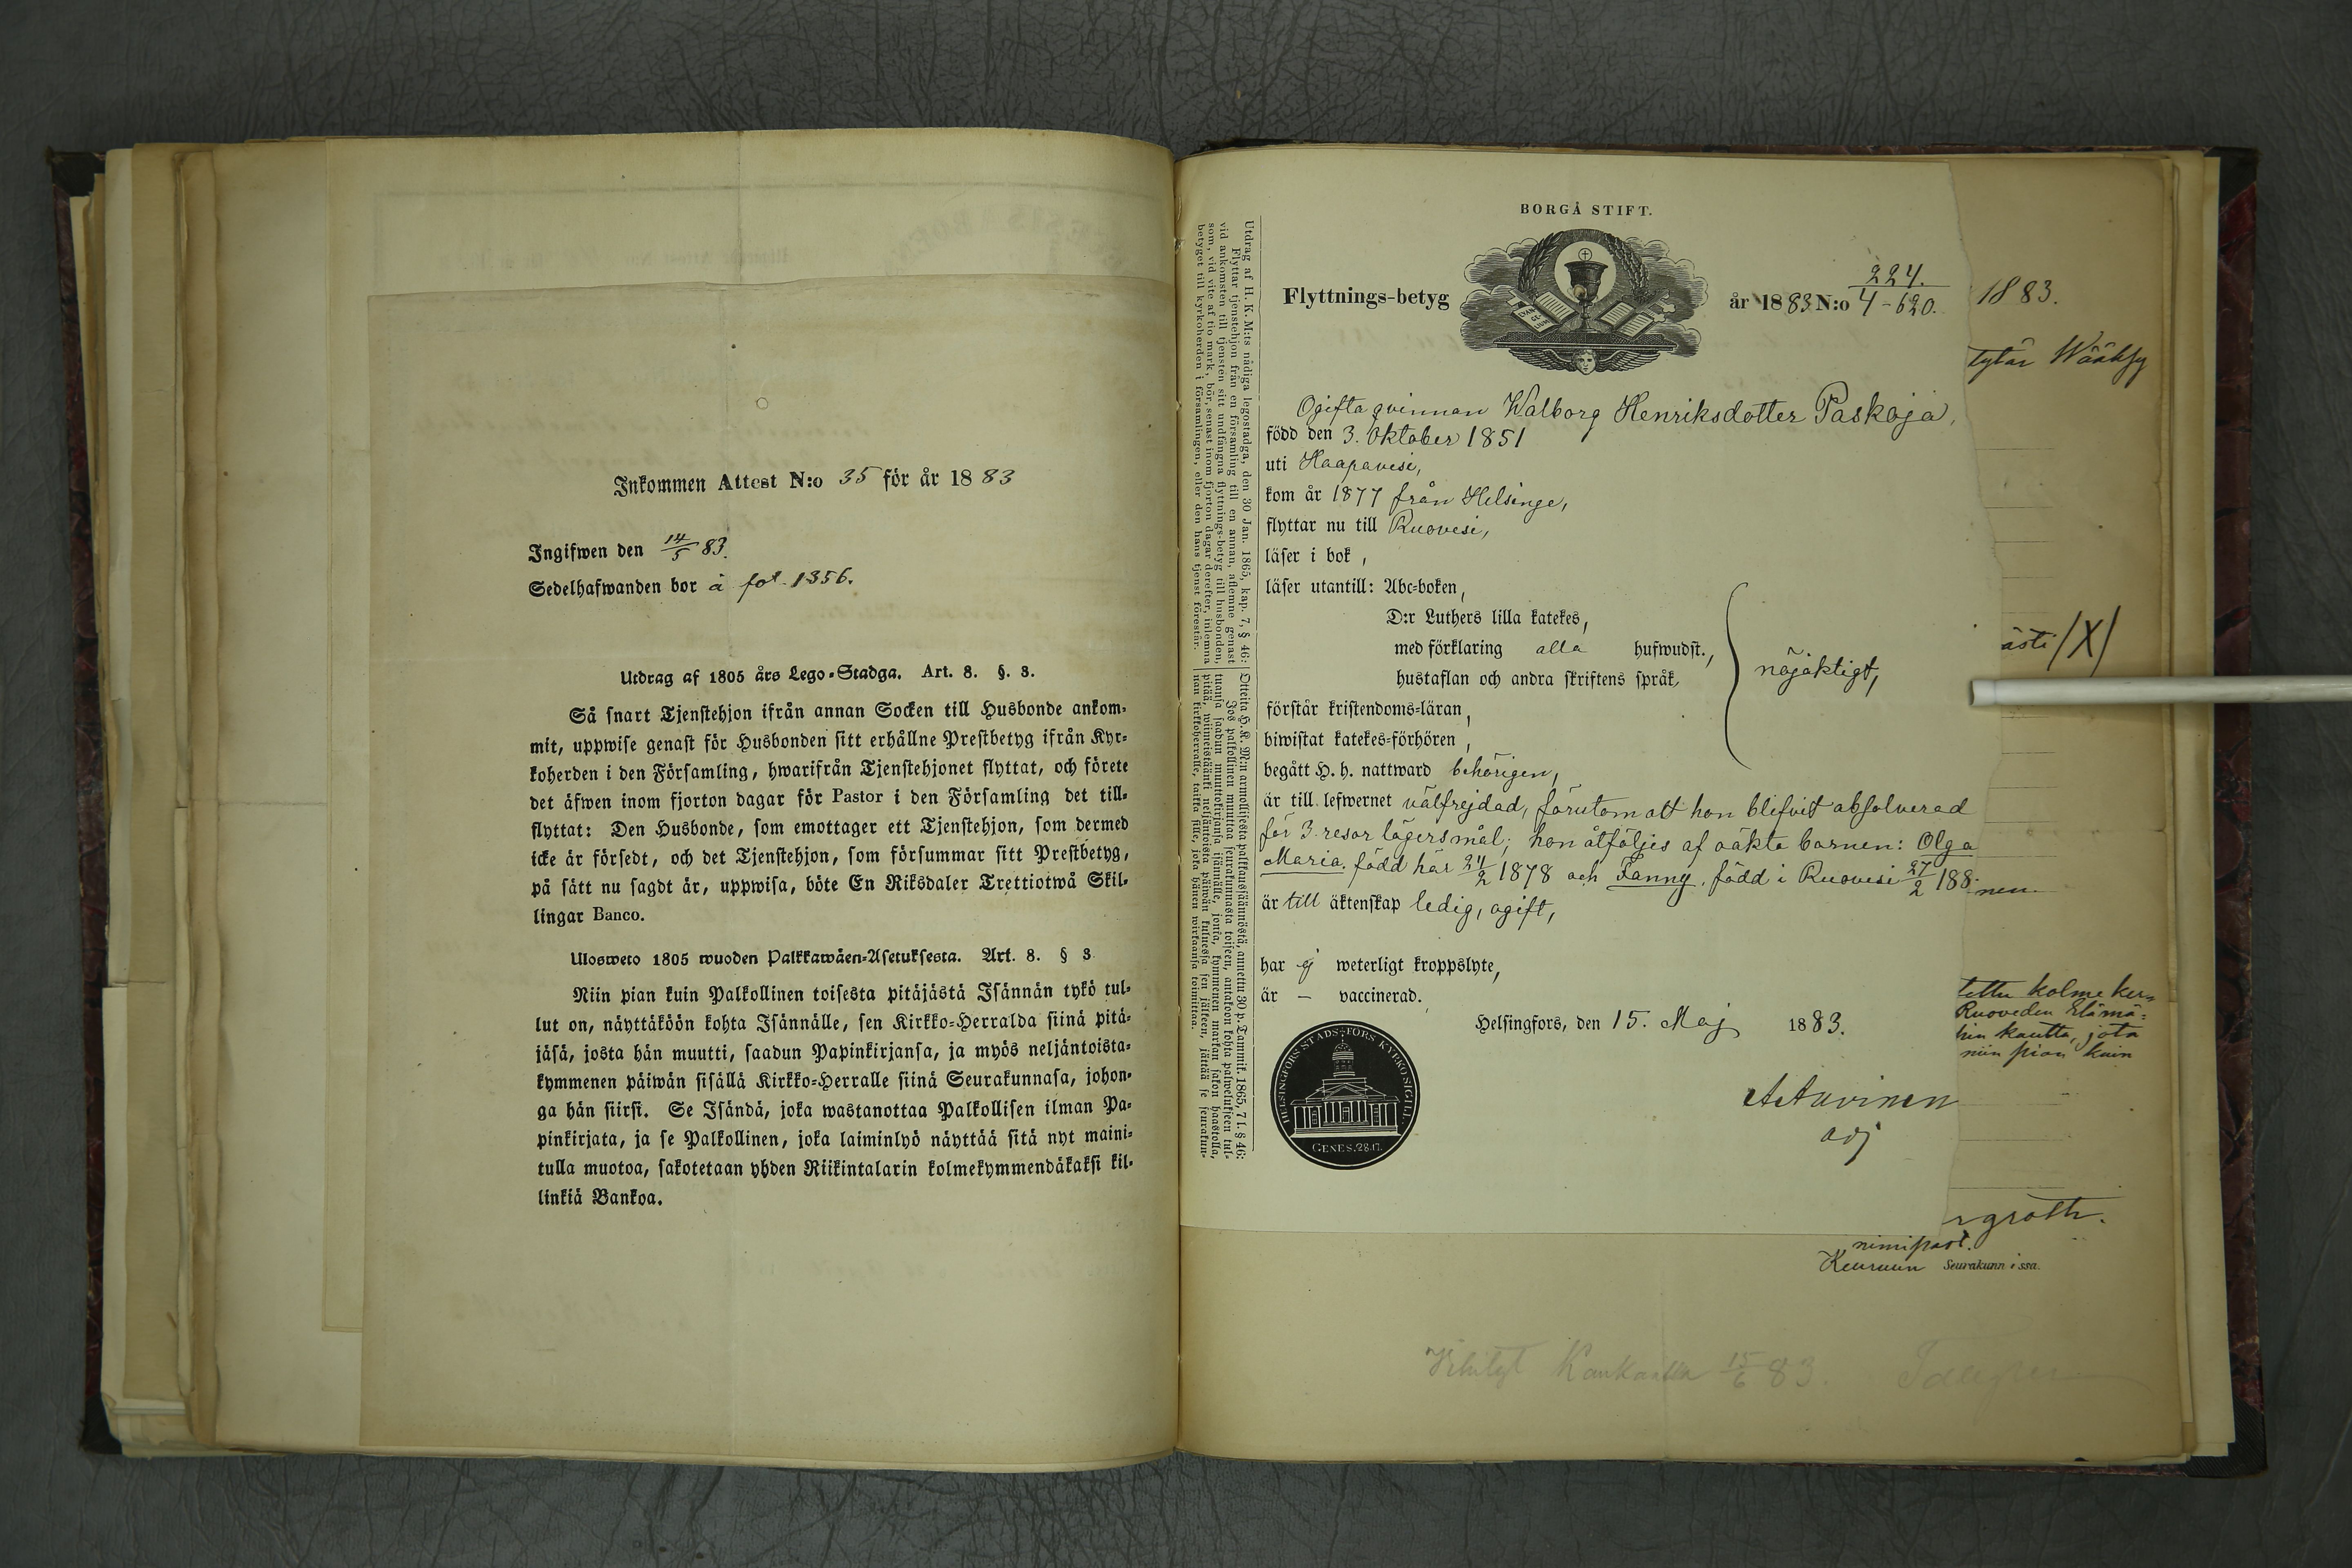 Inkommen Attest N:o 35 för år 1883
Ingifwen den 14/5 83.
Sedelhafwanden bor å fol. 1356.
Utdrag af 1805 års Lego-Stadga. Art. 8. §. 3.
Så snart Tjenstehjon ifrån annan Socken till Husbonde ankom-
mit, uppwise genast för Husbonden sitt erhållne Prestbetyg ifrån Kyr-
koherden i den Församling, hwarifrån Tjenstehjonet flyttat, och förete
det äfwen inom fjorton dagar för Pastor i den Församling det till-
flyttat: Den Husbonde, som emottager ett Tjenstehjon, som dermed
icke är försedt, och det Tjenstehjon, som försummar sitt Prestbetyg,
på sätt nu sagdt är, uppwisa, böte En Riksdaler Trettiotwå Skil-
lingar Banco.
Ulosweto 1805 wuoden Palkkawäen-Asetuksesta. Art. 8. § 3
Niin pian kuin Palkollinen toisesta pitäjästä Isännän tykö tul-
lut on, näyttäköön kohta Isännälle, sen Kirkko-Herralda siinä pitä-
jäsä, josta hän muutti, saadun Papinkirjansa, ja myös neljäntoista-
kymmenen päiwän sisällä Kirkko-Herralle siinä Seurakunnasa, johon-
ga hän siirsi. Se Isändä, joka wastanottaa Palkollisen ilman Pa-
pinkirjata, ja se Palkollinen, joka laiminlyö näyttää sitä nyt maini-
tulla muotoa, sakotetaan yhden Riikintalarin kolmekymmendäkaksi kil-
linkiä Bankoa.
BORGÅ STIFT.
EVAN-
GE-
LIUM
Flyttnings-betyg år 1883 N:o 224. 4-620.
Utdrag af H. K. M:ts nådiga legostadga, den 30 Jan. 1865, kap. 7, § 46:
Flyttar tjenstehjon från en församling till en annan, aflemne genast
vid ankomsten till tjensten sitt undfångna flyttnings-betyg till husbonden,
som, vid vite af tio mark, bör, senast inom fjorton dagar derefter, inlemna
betyget till kyrkoherden i församlingen, eller den hans tjenst förestår.
Otteita H. K. M:n armollisesta palkkaussäännöstä, annettu 30 p. Tammik. 1865, 7 l. § 46:
Jos palkollinen muuttaa seurakunnasta toiseen, antakoon kohta palwelukseen tul-
tuansa saadun muuttokirjansa isännälle, jonka, kymmenen markan sakon haastolla,
pitää, wiimeistäänki neljäntoista päiwän kuluessa sen jälkeen, jättää se seurakun-
nan kirkkoherralle, taikka sille, joka hänen wirkaansa toimittaa.
Ogifta qvinnan Walborg Henriksdotter Paskoja,
född den 3. Oktober 1851
uti Haapavesi,
kom år 1877 från Helsinge,
flyttar nu till Ruovesi,
läser i bok,
läser utantill: Abc-boken,
D:r Luthers lilla katekes,
med förklaring alla hufwudst.,
hustaflan och andra skriftens språk,
nöjaktigt,
förstår kristendoms-läran,
biwistat katekes-förhören,
begått H. h. nattward behörigen,
är till lefwernet välfrejdad, förutom att hon blifvit absolverad
för 3. resor lägersmål; hon åtföljes af oäkta barnen: Olga
Maria, född här 24/2 1878 och Fanny, född i Ruovesi 27/2 188
är till äktenskap ledig, ogift,
har ej weterligt kroppslyte,
är — vaccinerad.
Helsingfors, den 15. Maj 1883.
adj
HELSINGFORS STADS-FÖRS. KYRKOSIGILL.
GENES. 28.17.
1883.
tytär Wääksy
ästi /X/
nen
tettu kolme ker-
Ruoveden Elämä-
hin kautta, jota
niin pian kuin
groth.
nimipast.
Keuruun Seurakunnissa.
15/6 83.